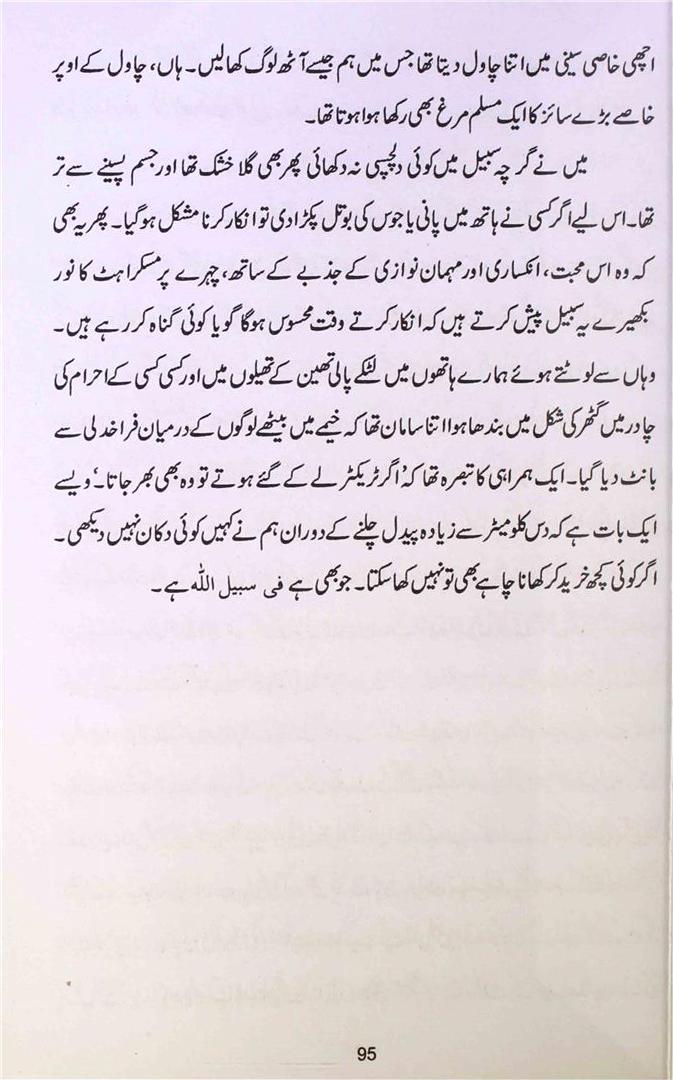 اچھی خاصی سینی میں اتنا چاول دیتا تھا جس میں ہم جیسے آٹھ لوگ کھالیں۔ ہاں، چاول کے اوپر
خاصے بڑے سائز کا ایک مسلم مرغ بھی رکھا ہوا ہوتا تھا۔
میں نے گرچہ سبیل میں کوئی دلچسپی نہ دکھائی پھر بھی گلا خشک تھا اور جسم پسینے سے تر
تھا۔ اس لیے اگر کسی نے ہاتھ میں پانی یا جوس کی بوتل پکڑا دی تو انکار کرنا مشکل ہوگیا۔ پھر یہ بھی
کہ وہ اس محبت، انکساری اور مہمان نوازی کے جذبے کے ساتھ، چہرے پر مسکراہٹ کا نور
بکھیرے یہ سبیل پیش کرتے ہیں کہ انکار کرتے وقت محسوس ہوگا گویا کوئی گناہ کر رہے ہیں۔
وہاں سے لوٹتے ہوئے ہمارے ہاتھوں میں لٹکے پالی تھین کے تھیلوں میں اور کسی کسی کے احرام کی
چادر میں گٹھر کی شکل میں بندھا ہوا اتنا سامان تھا کہ خیمے میں بیٹھے لوگوں کے درمیان فراخدلی سے
بانٹ دیا گیا۔ ایک ہمراہی کا تبصرہ تھا کہ 'اگر ٹریکٹر لے کے گئے ہوتے تو وہ بھی بھر جاتا۔' ویسے
ایک بات ہے کہ دس کلومیٹر سے زیادہ پیدل چلنے کے دوران ہم نے کہیں کوئی دکان نہیں دیکھی۔
اگر کوئی کچھ خرید کر کھانا چاہے بھی تو نہیں کھا سکتا۔ جو بھی ہے فی سبیل اللہ ہے۔
95